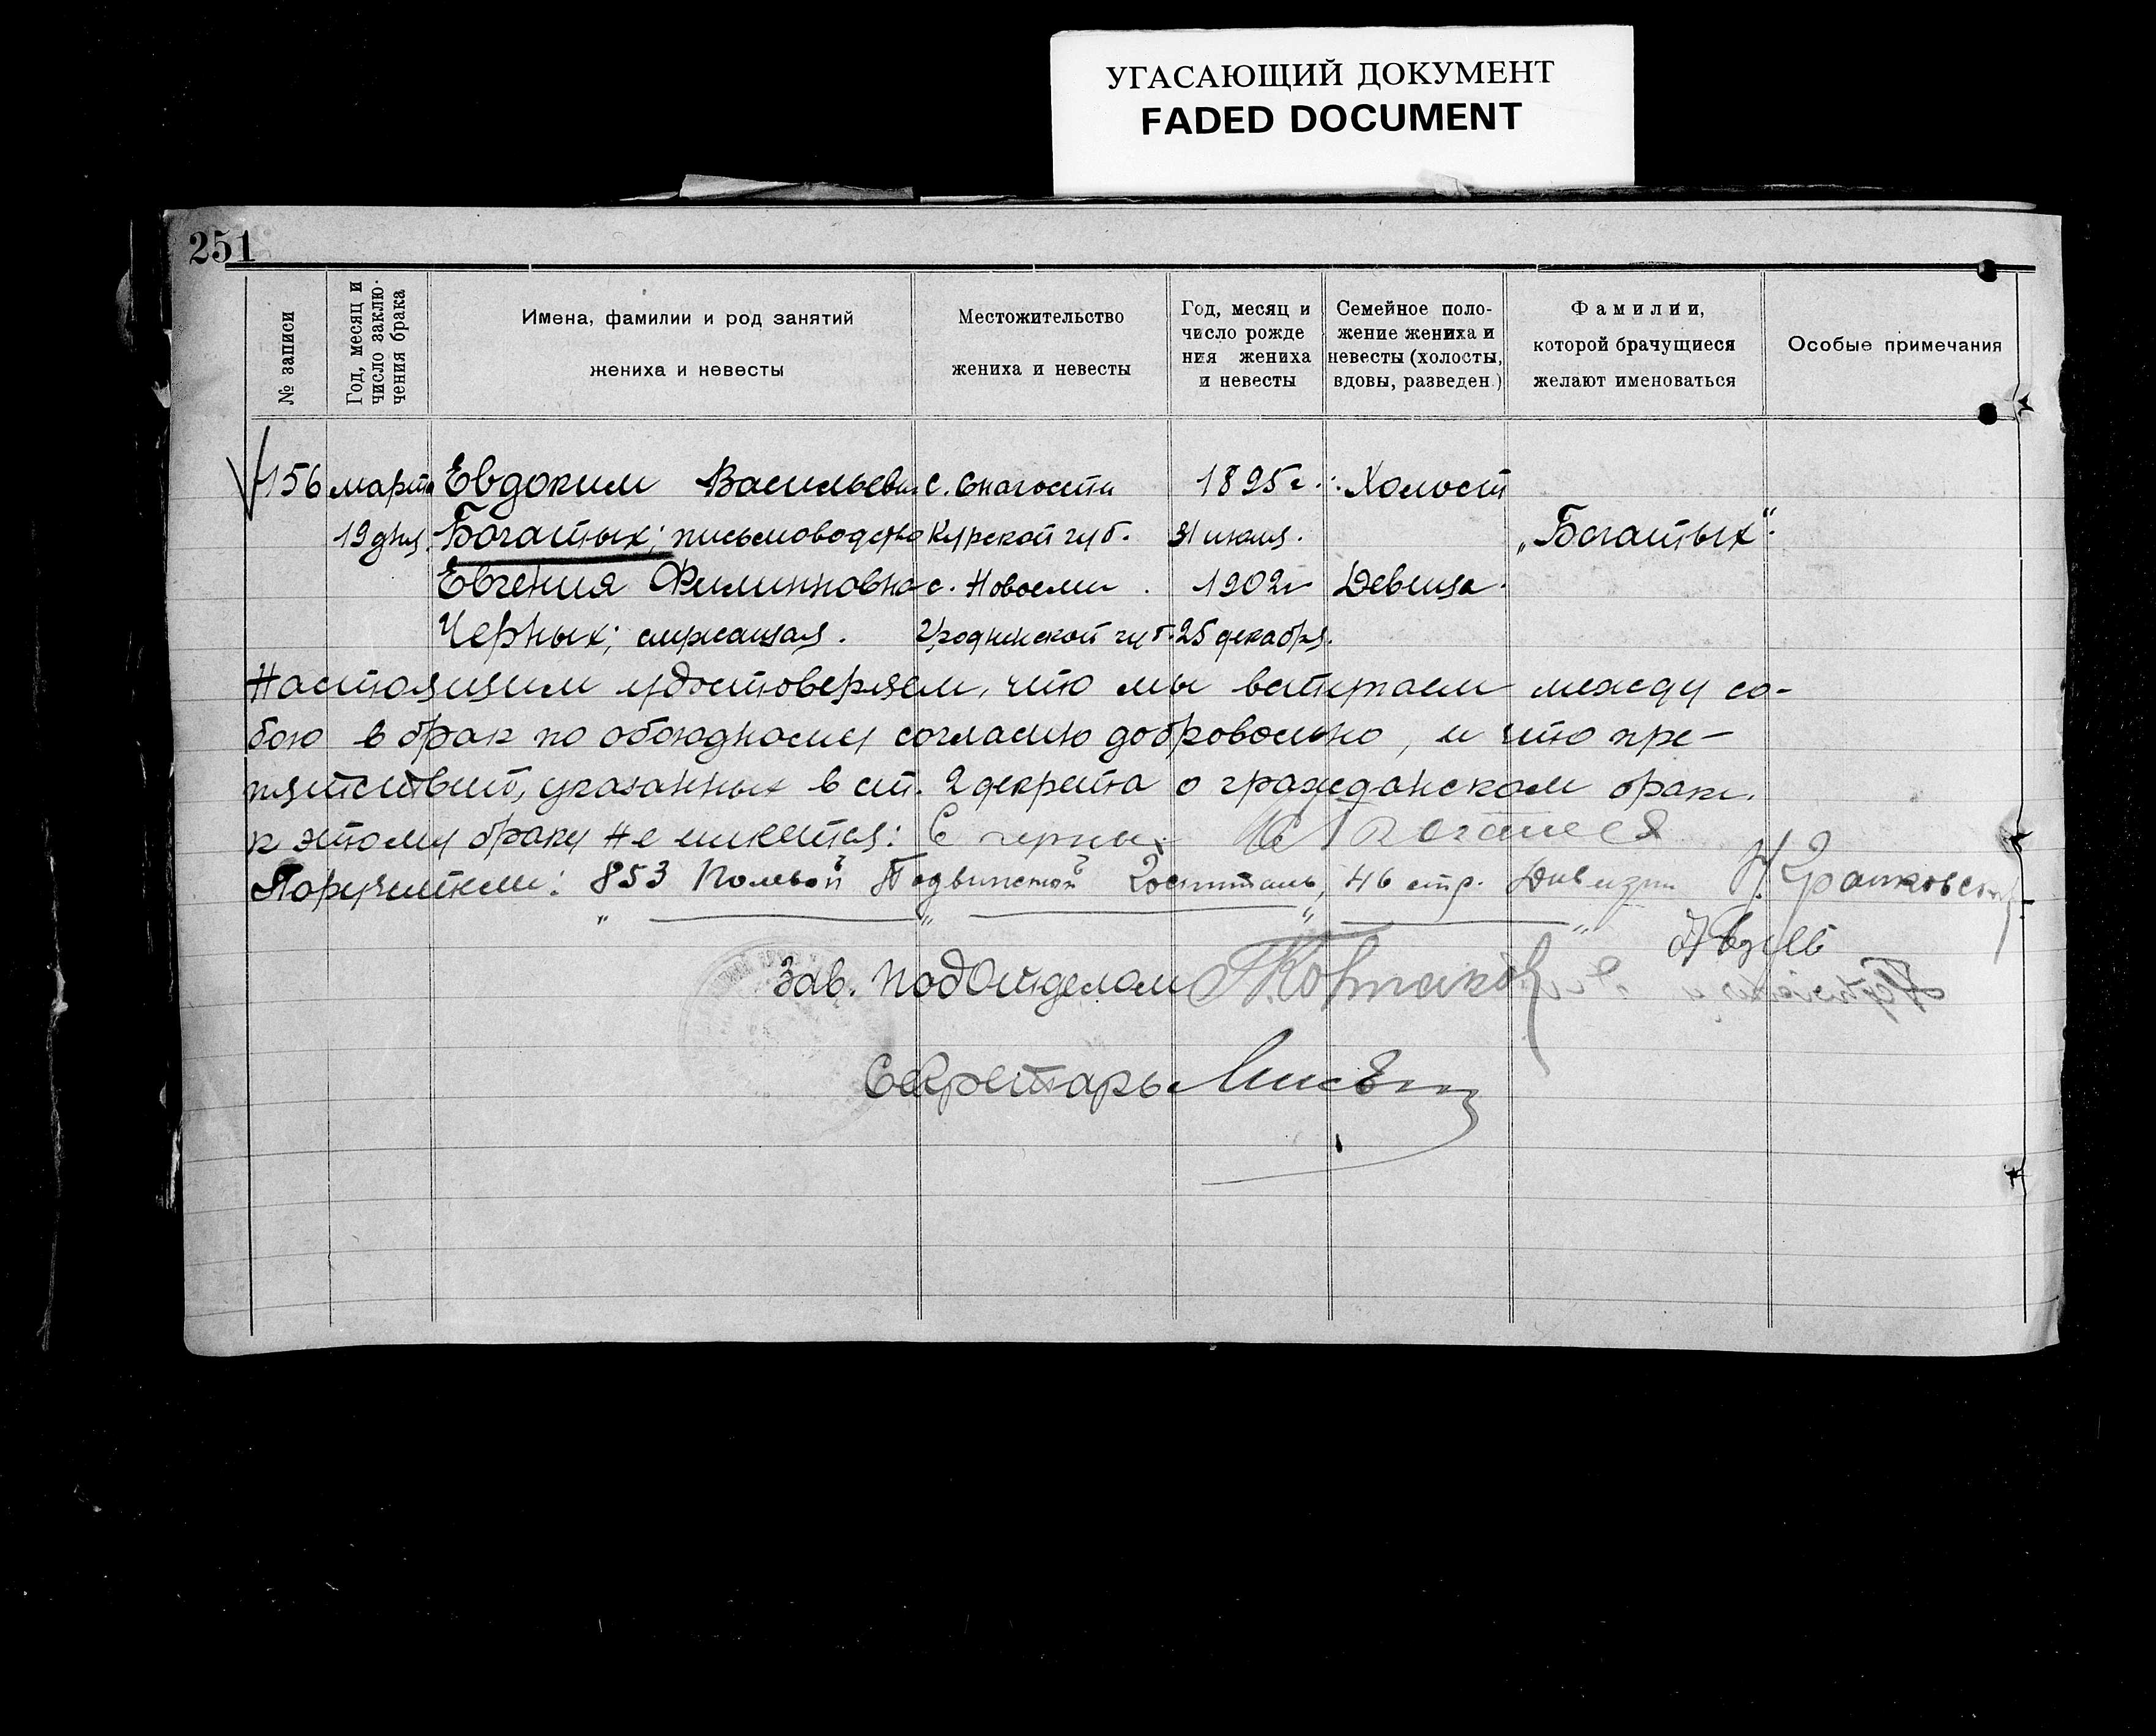 УГАСАЮЩИЙ ДОКУМЕНТ
FADED DOCUMENT
251
№ записи
Год, месяц и
число заклю-
чения брака
Имена, фамилии и род занятий
жениха и невесты
Местожительство
жениха и невесты
Год, месяц и
число рожде
ния жениха
и невесты
Семейное поло-
жение жениха и
невесты (холосты,
вдовы, разведен.)
Фамилии,
которой брачущиеся
желают именоваться
Особые примечания
156 марта Евдоким Васильевич с. Снагости 1895 г. Холост
19 дня. Богатых; письмоводство Курской губ. 31 июля. „Богатых“.
Евгения Филипповна с. 1902 г Девица.
Черных; служащая. Гродненской губ. 25 декабря.
Настоящим удостоверяем, что мы вступаем между со-
бою в брак по обоюдному согласию добровольно, и что пре-
пятствий, указанных в ст. 2 декрета о гражданском браке.
к этому браку не имеется: Е Черных
Поручители: 853 Полевой Подвижной Госпиталь, 46 стр. Дивизии
Зав. Подотделом
Секретарь